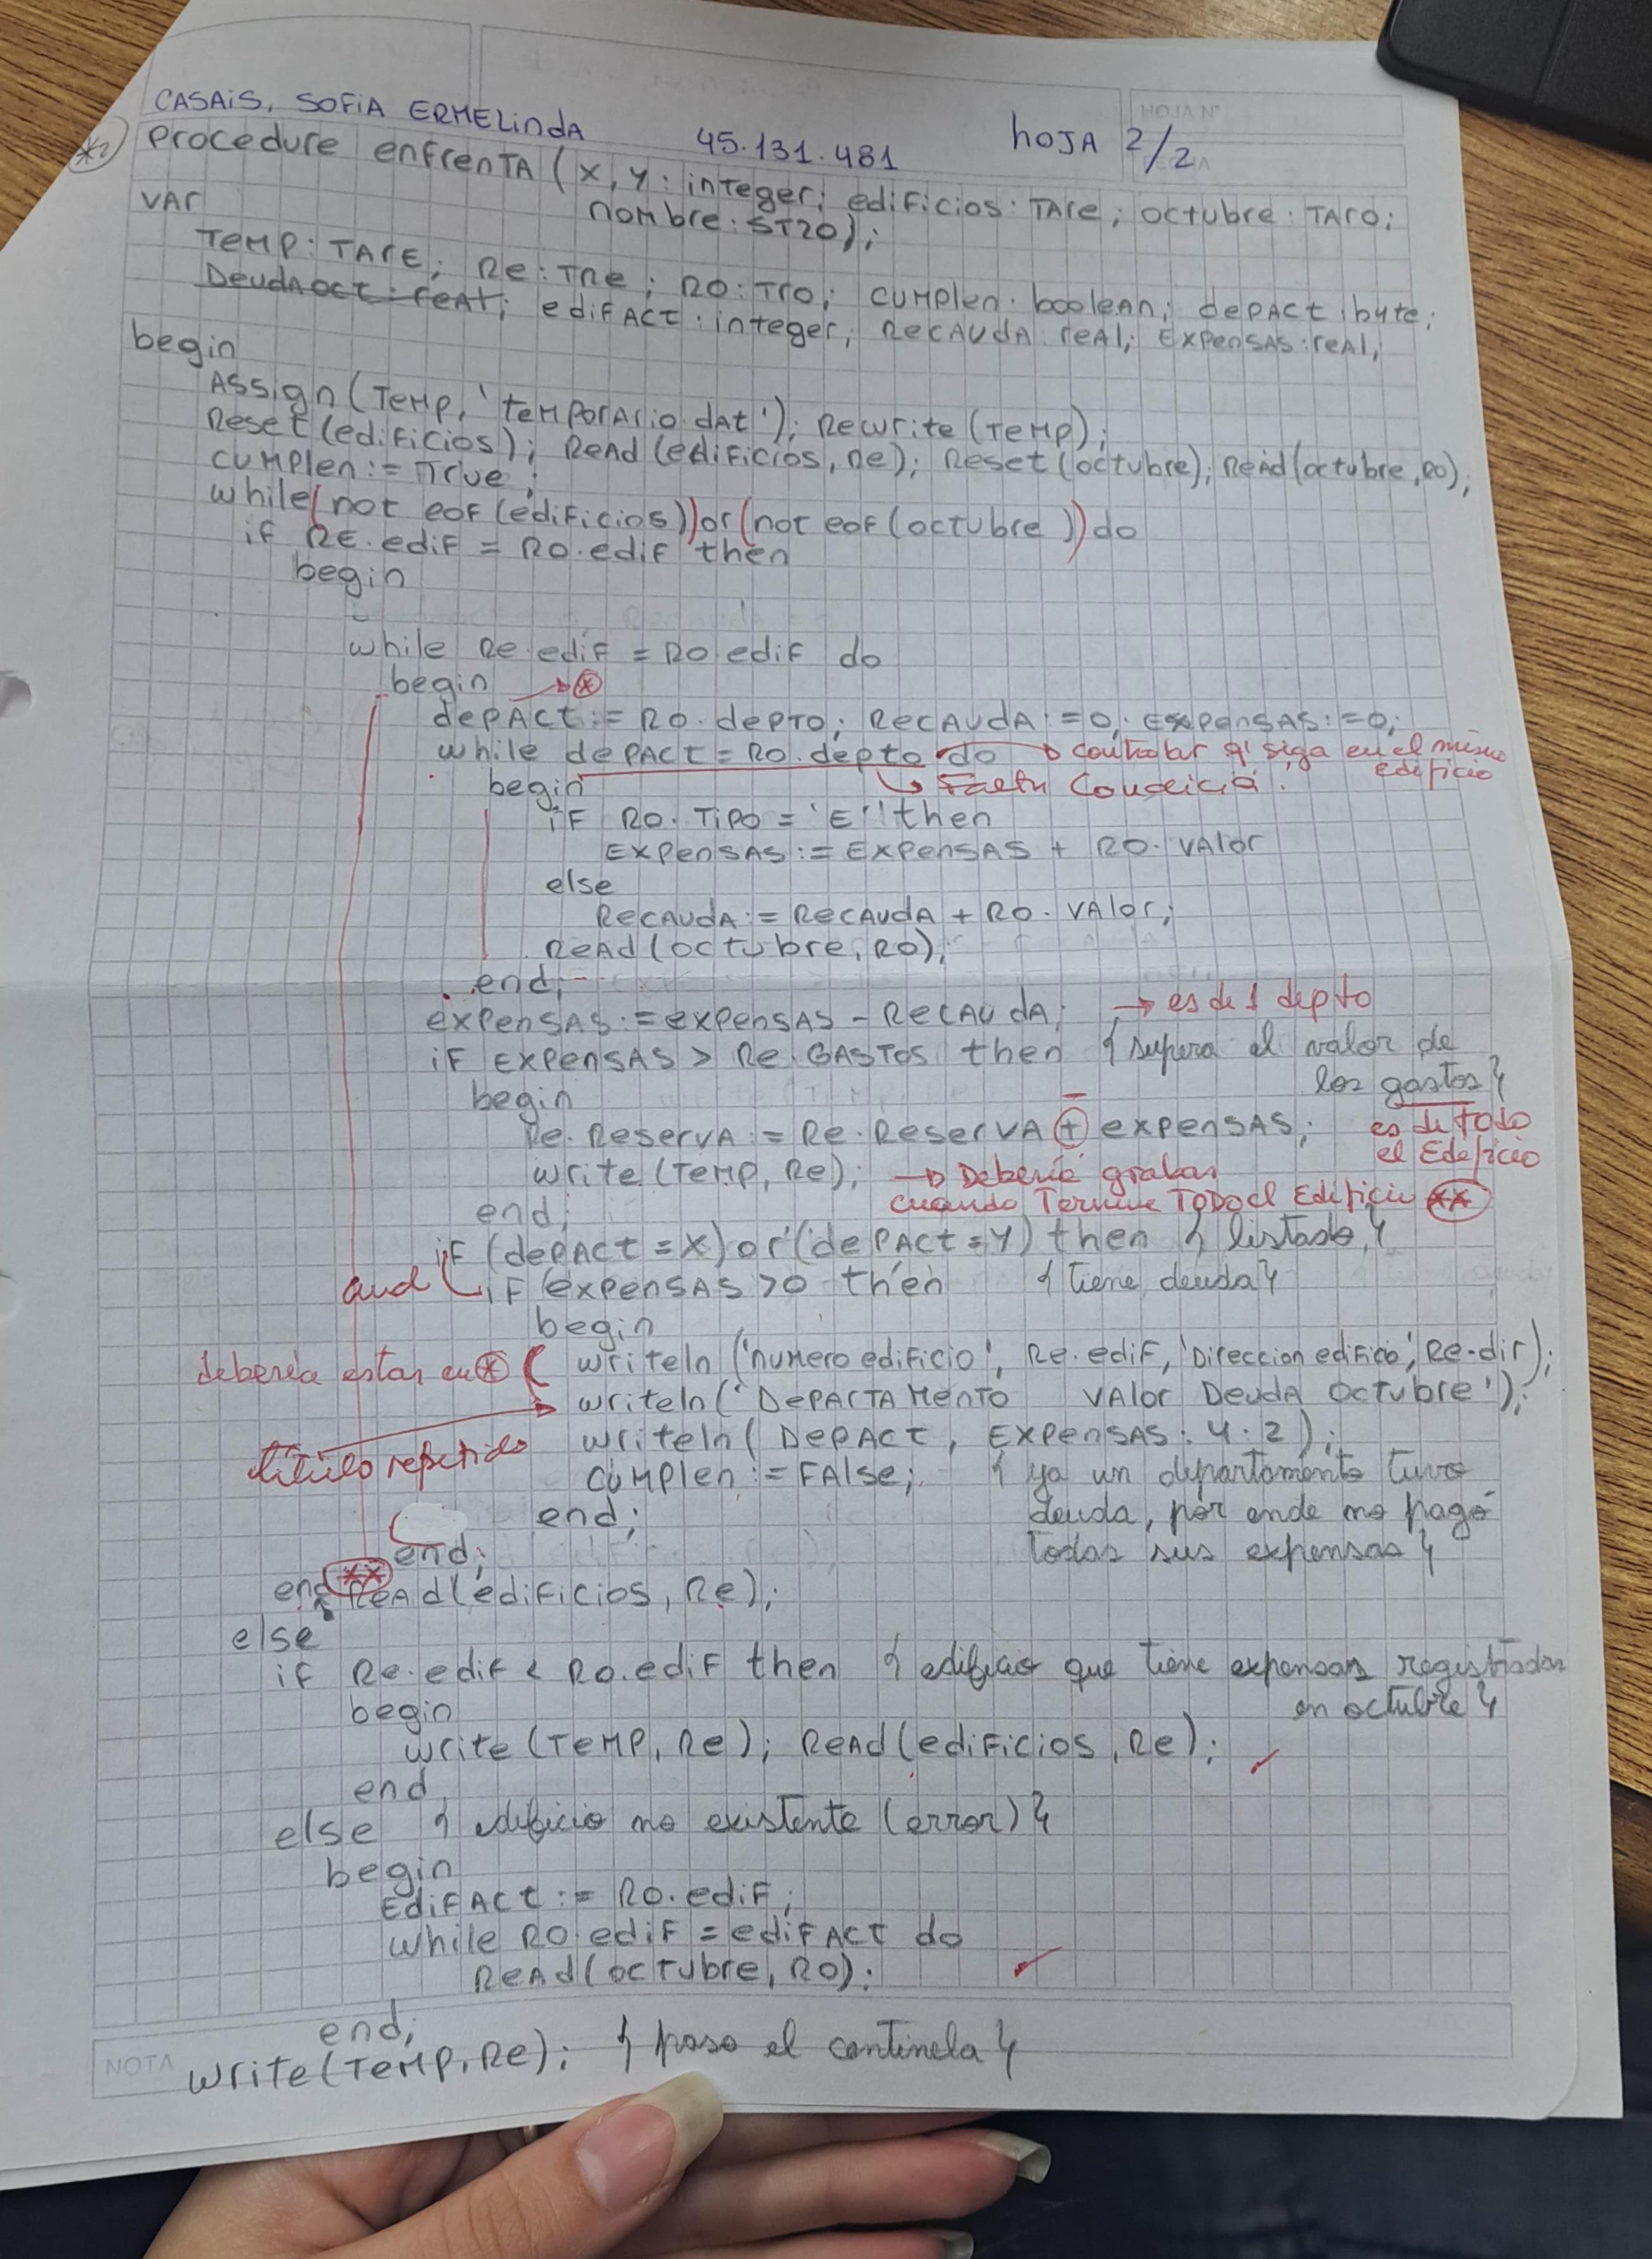 HOJA N°
CASAIS, SOFIA ERMELINDA 45.131.481 HOJA 2/2
*2) Procedure enfrenTA (x, y: integer; edificios: TAre; octubre: TAro;
nombre: ST20);
var
Temp: TAre; Re: Tre; RO: Tro; cumplen: boolean; depAct: byte;
DeudAOct: reAl; edifAct: integer; RecAudA: reAl; ExpensAs: reAl;
begin
Assign(Temp, 'temporArio.dat'); Rewrite(Temp);
Reset(edificios); ReAd(edificios, Re); Reset(octubre); ReAd(octubre, RO);
cumplen:= True;
while (not eof(edificios)) or (not eof(octubre)) do
if RE.edif = RO.edif then
begin
while Re.edif = RO.edif do
begin → *
depAct:= RO.depto; RecAudA:=0; ExpensAs:=0;
while depAct = RO.depto do → controlar q' siga en el mismo
edificio
begin ↳ Falta Condición!
if RO.Tipo = 'E' then
ExpensAs:= ExpensAs + RO.vAlor
else
RecAudA:= RecAudA + RO.vAlor;
ReAd(octubre, RO);
end;
expensAs:= expensAs - RecAudA; → es de 1 depto
if ExpensAs > Re.GAstos then { supera el valor de
los gastos }
begin -
Re.ReservA:= Re.ReservA + expensAs; es de todo
el Edificio
write(Temp, Re); → Debería grabar
cuando Termine TODO el Edificio **
end;
if (depAct = x) or (depAct = y) then { listado }
and if expensAs > 0 then { tiene deuda }
begin
debería estar en * ( writeln('numero edificio', Re.edif, 'Direccion edifico', Re.dir);
writeln('DepArtAmento VAlor DeudA Octubre');
título repetido writeln(DepAct, ExpensAs:4:2);
cumplen:= FAlse; { ya un departamento tuvo
end; deuda, por ende no pagó
todas sus expensas }
end;
** end ReAd(edificios, Re);
else
if Re.edif < RO.edif then { edificio que tiene expensas registradas
en octubre }
begin
write(Temp, Re); ReAd(edificios, Re);
end
else { edificio no existente (error) }
begin
EdifAct:= RO.edif;
while RO.edif = edifAct do
ReAd(octubre, RO);
end;
NOTA write(Temp, Re); { paso el centinela }